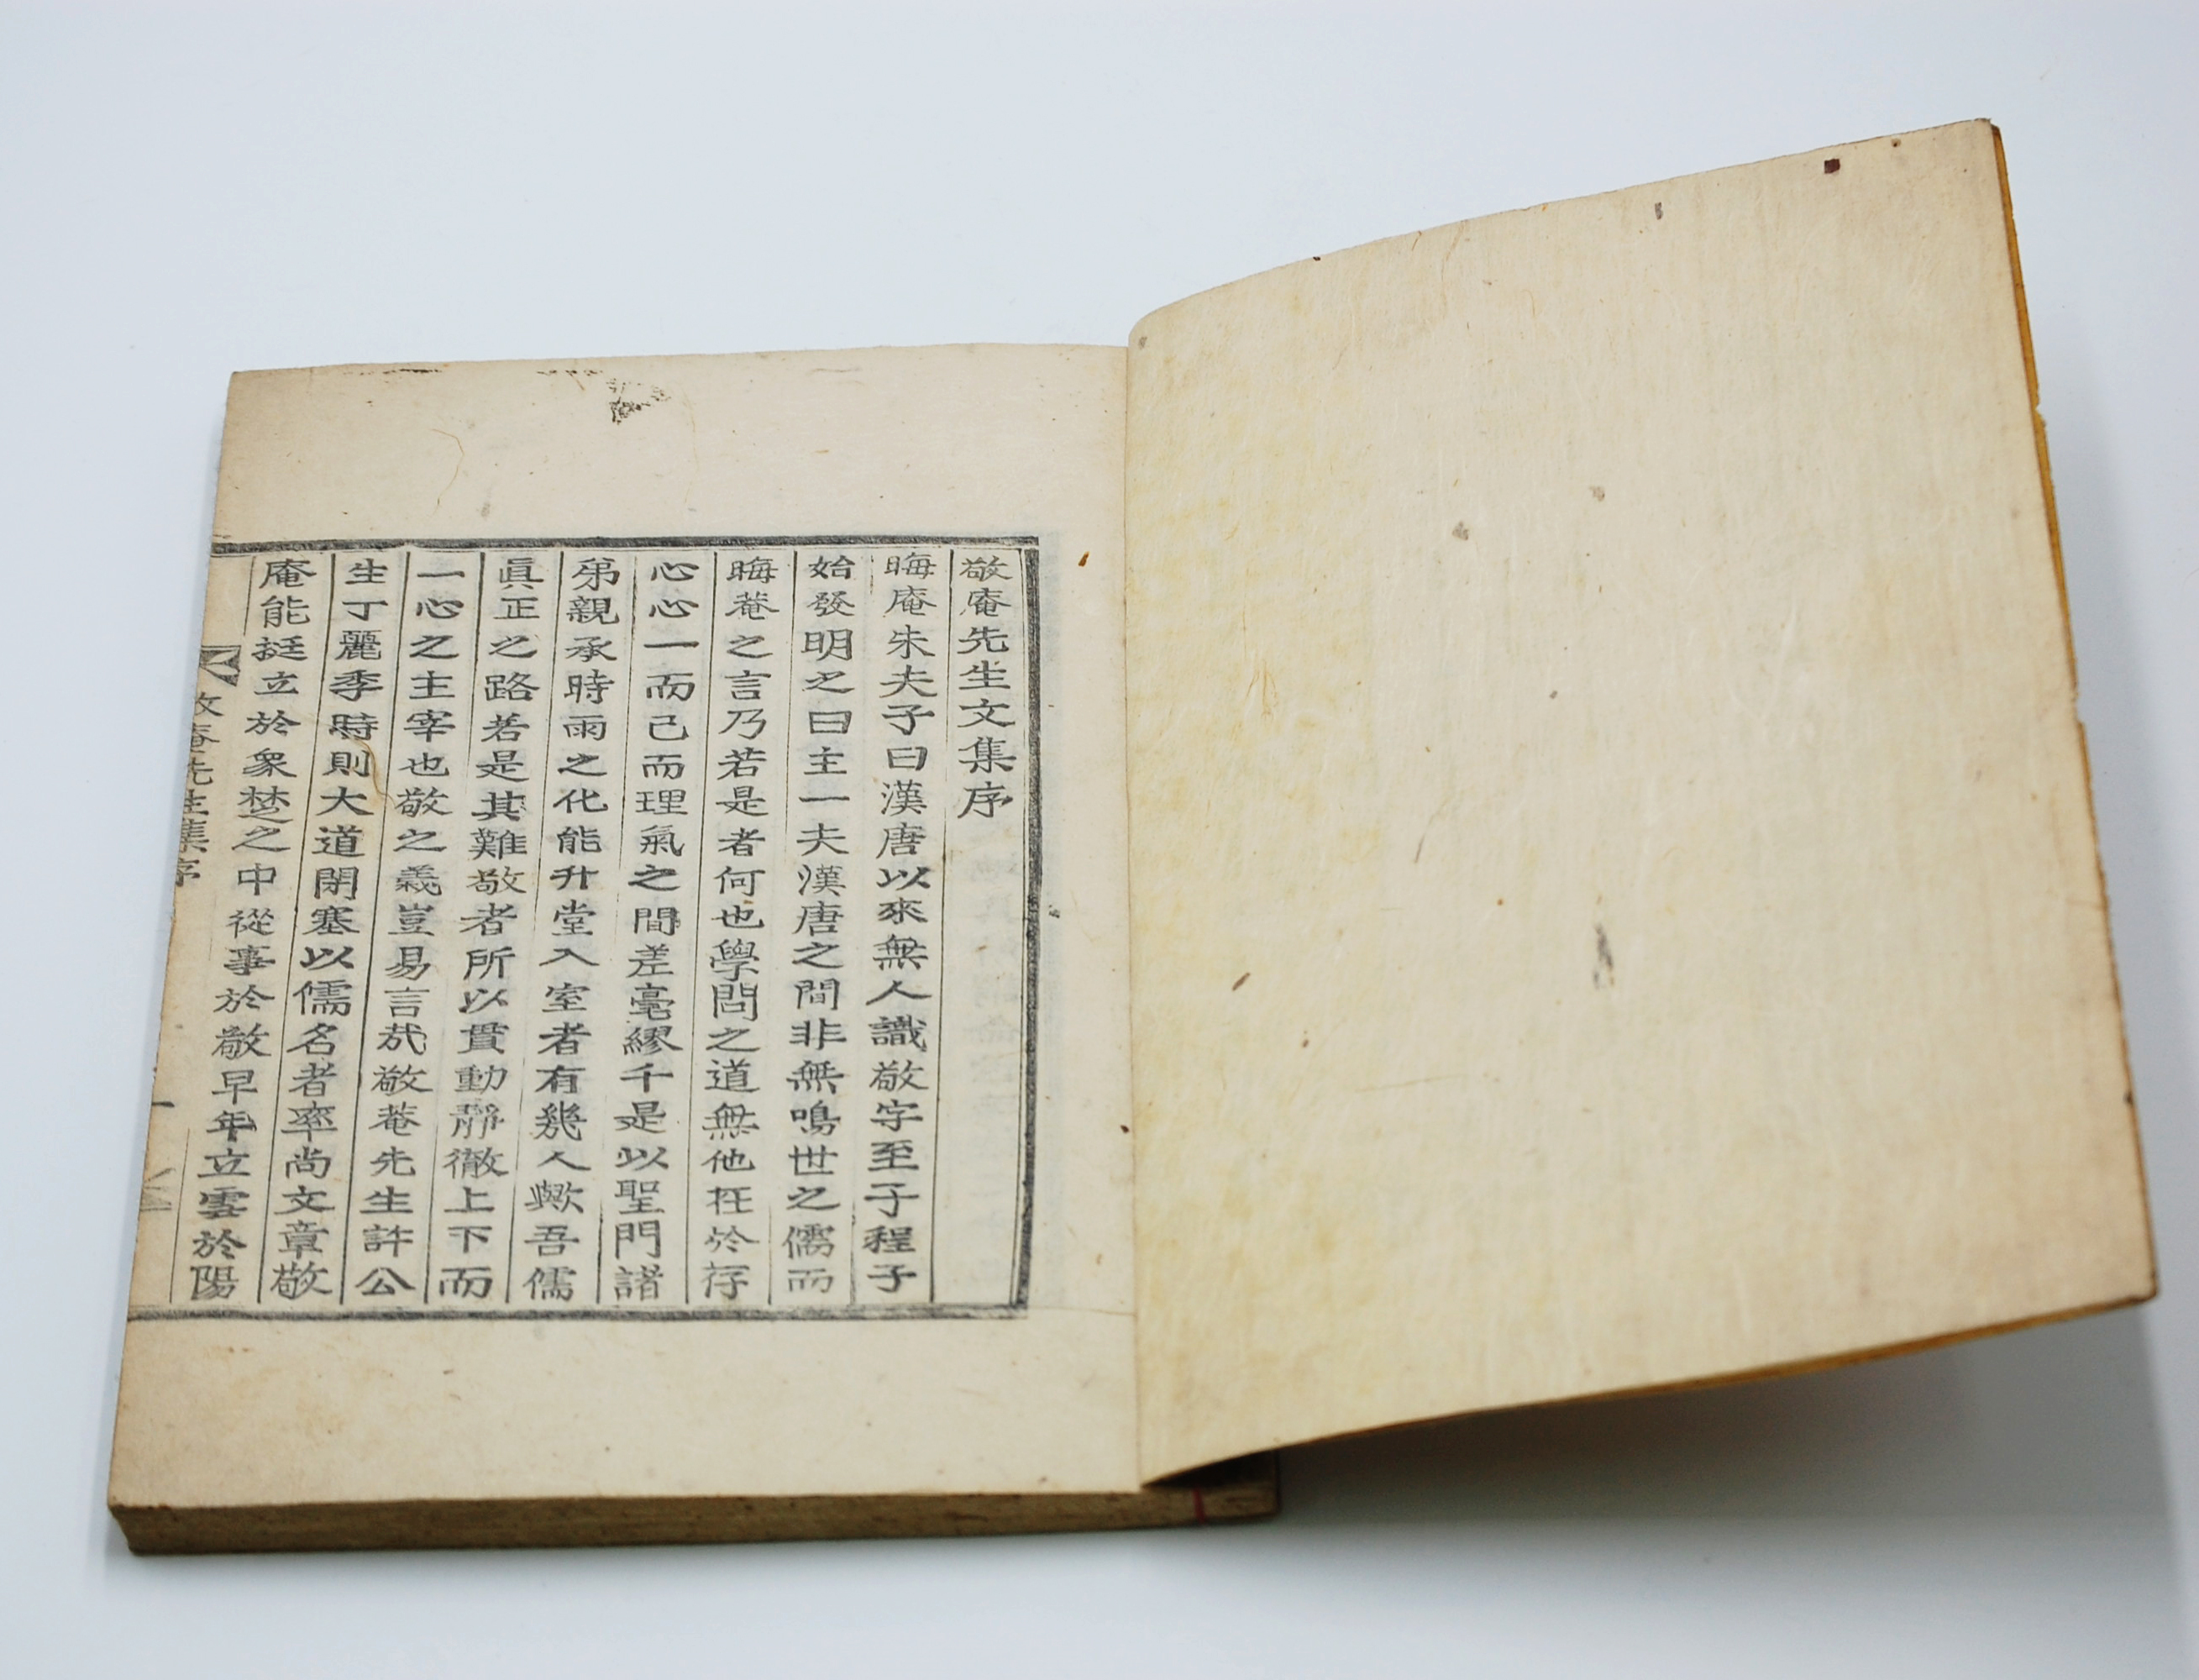 敬庵先生文集序
晦庵朱夫子曰漢唐以來無人識敬字至于程子
始發明之曰主一夫漢唐之間非無鳴世之儒而
晦菴之言乃若是者何也學問之道無他在於存
心心一而已而理氣之間差毫繆千是以聖門諸
弟親承時雨之化能升堂入室者有幾人歟吾儒
眞正之路若是其難敬者所以貫動靜徹上下而
一心之主宰也敬之義豈易言哉敬菴先生許公
生丁麗季時則大道閉塞以儒名者率尚文章敬
庵能挺立於衆楚之中從事於敬早年立雪於陽
敬庵先生集序
一